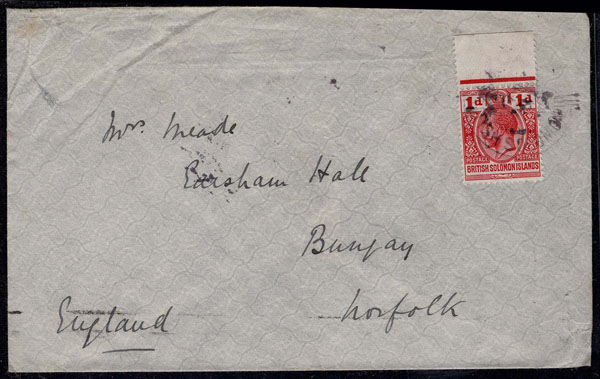 1d 1d
POSTAGE POSTAGE
BRITISH SOLOMON ISLANDS
Mrs. Meade
Earsham Hall
Bungay
Norfolk
England